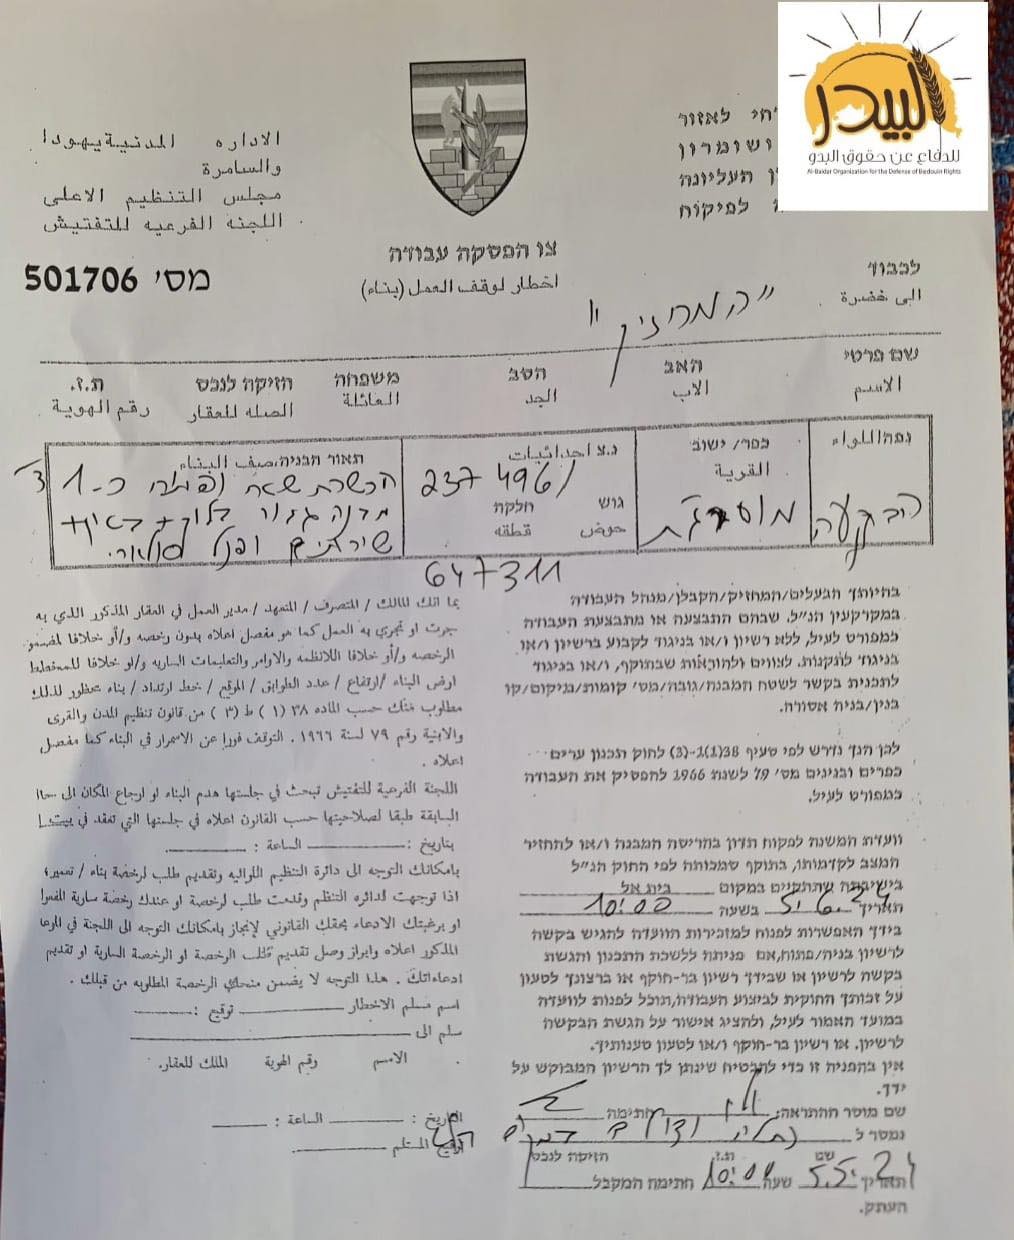 البيدر
للدفاع عن حقوق البدو
Al-Baidar Organization for the Defense of Bedouin Rights
לאזור
ושומרון
העליונה
לפיקוח
الاداره المدنية يهودا
والسامرة
مجلس التنظيم الاعلى
اللجنه الفرعيه للتفتيش
צו הפסקה עבודה
اخطار لوقف العمل (بناء)
מס' 501706
לכבוד
الى حضرة
"המחזיק"
שם פרטי האב הסב משפחה חזיקה לנכס ת.ז.
الاسم الاب الجد العائلة الصله للعقار رقم الهوية
נפה اللواء
הבקעה
כפר/ ישוב
القرية
מוערג'ת
נ.צ احداثيات
237 496/
גוש חלקה
حوض قطعه
647311
תאור הבניה، صف البناء
הכשרת שטח
מבנה
שירותים ופנל סולארי
בהיותך הבעלים/המחזיק/הקבלן/מנהל העבודה
במקרקעין הנ"ל, שבהם התבצעה או מתבצעת העבודה
כמפורט לעיל, ללא רשיון ו/או בניגוד לקבוע ברשיון ו/או
בניגוד לתקנות, לצווים ולהוראות שבתוקף, ו/או בניגוד
לתכנית בקשר לשטח המבנה/גובה/מס' קומות/מיקום/קו
בנין/בניה אסורה.
לכן הנך נדרש לפי סעיף 38(1)ג-(3) לחוק תכנון ערים
כפרים ובנינים מס' 79 לשנת 1966 להפסיק את העבודה
כמפורט לעיל.
וועדת המשנה לפקוח תדון בהריסת המבנה ו/או להחזיר
המצב לקדמותו, בתוקף סמכותה לפי החוק הנ"ל
בישיבתה שתתקיים במקום בית אל
תאריך בשעה 10:00
בידך האפשרות לפנות למזכירות הוועדה להגיש בקשה
לרשיון בניה/פתוח, אם פניתה ללשכת התכנון והגשת
בקשה לרשיון או שבידך רשיון בר-תוקף או ברצונך לטעון
על זכותך החוקית לביצוע העבודה, תוכל לפנות לוועדה
במועד האמור לעיל, ולהציג אישור על הגשת הבקשה
לרשיון. או רשיון בר-תוקף ו/או לטעון טענותיך.
אין בהפניה זו כדי להבטיח שינתן לך הרשיון המבוקש על
ידך.
שם מוסר ההתראה: חתימה
נמסר ל
שם ת.ז. חזיקה לנכס
תאריך 5.5 שעה 10:00 חתימת המקבל
העתק.
بما انك المالك / المتصرف / المتعهد / مدير العمل في العقار المذكور الذي به
جرت او تجري به العمل كما هو مفصل اعلاه بدون رخصه و/أو خلافا لمضمون
الرخصه و/أو خلافا للانظمه والاوامر والتعليمات الساريه و/او خلافا للمخطط
ارض البناء /ارتفاع / عدد الطوابق / الموقع / خط ارتداد / بناء محظور لذلك
مطلوب منك حسب الماده ٣٨ (١) ط (٣) من قانون تنظيم المدن والقرى
والابنية رقم ٧٩ لسنة ١٩٦٦ . التوقف فورا عن الاسمرار في البناء كما مفصل
اعلاه .
اللجنة الفرعية للتفتيش تبحث في جلستها هدم البناء او ارجاع المكان الى
السابقة طبقا لصلاحيتها حسب القانون اعلاه في جلستها التي تعقد في
بتاريخ : الساعة :
بامكانك التوجه الى دائرة التنظيم اللوائيه وتقديم طلب لرخصة بناء / تعمير،
اذا توجهت لدائره التنظم وقدمت طلب لرخصة او عندك رخصة سارية المفعول
او برغبتك الادعاء بحقك القانوني لإنجاز بامكانك التوجه الى اللجنة في الموعد
المذكور اعلاه وابراز وصل تقديم طلب الرخصة او الرخصة السارية او تقديم
ادعاءاتك . هذا التوجه لا يضمن منحك الرخصة المطلوبه من قبلك .
اسم مسلم الاخطار توقيع :
سلم الى
الاسم رقم الهوية المالك للعقار.
التاريخ : الساعة :
توقيع المستلم